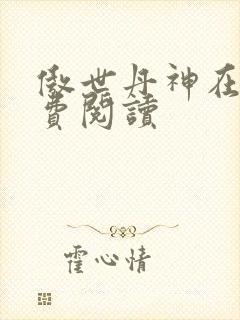 傲世丹神在
費閱讀
霍心情